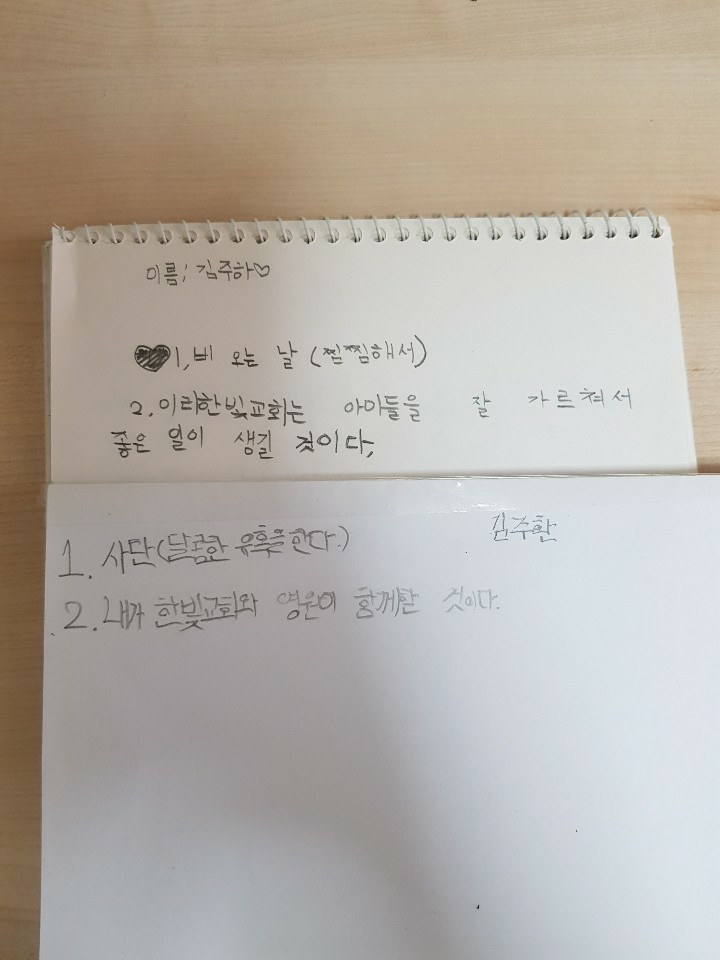 이름; 김주하♡
♥1, 비 오는 날 (찜찜해서)
2. 이리한빛교회는 아이들을 잘 가르쳐서
좋은 일이 생길 것이다,
김주환
1. 사단(달콤한 유혹을 한다.)
2. 내가 한빛교회와 영원이 함께할 것이다.